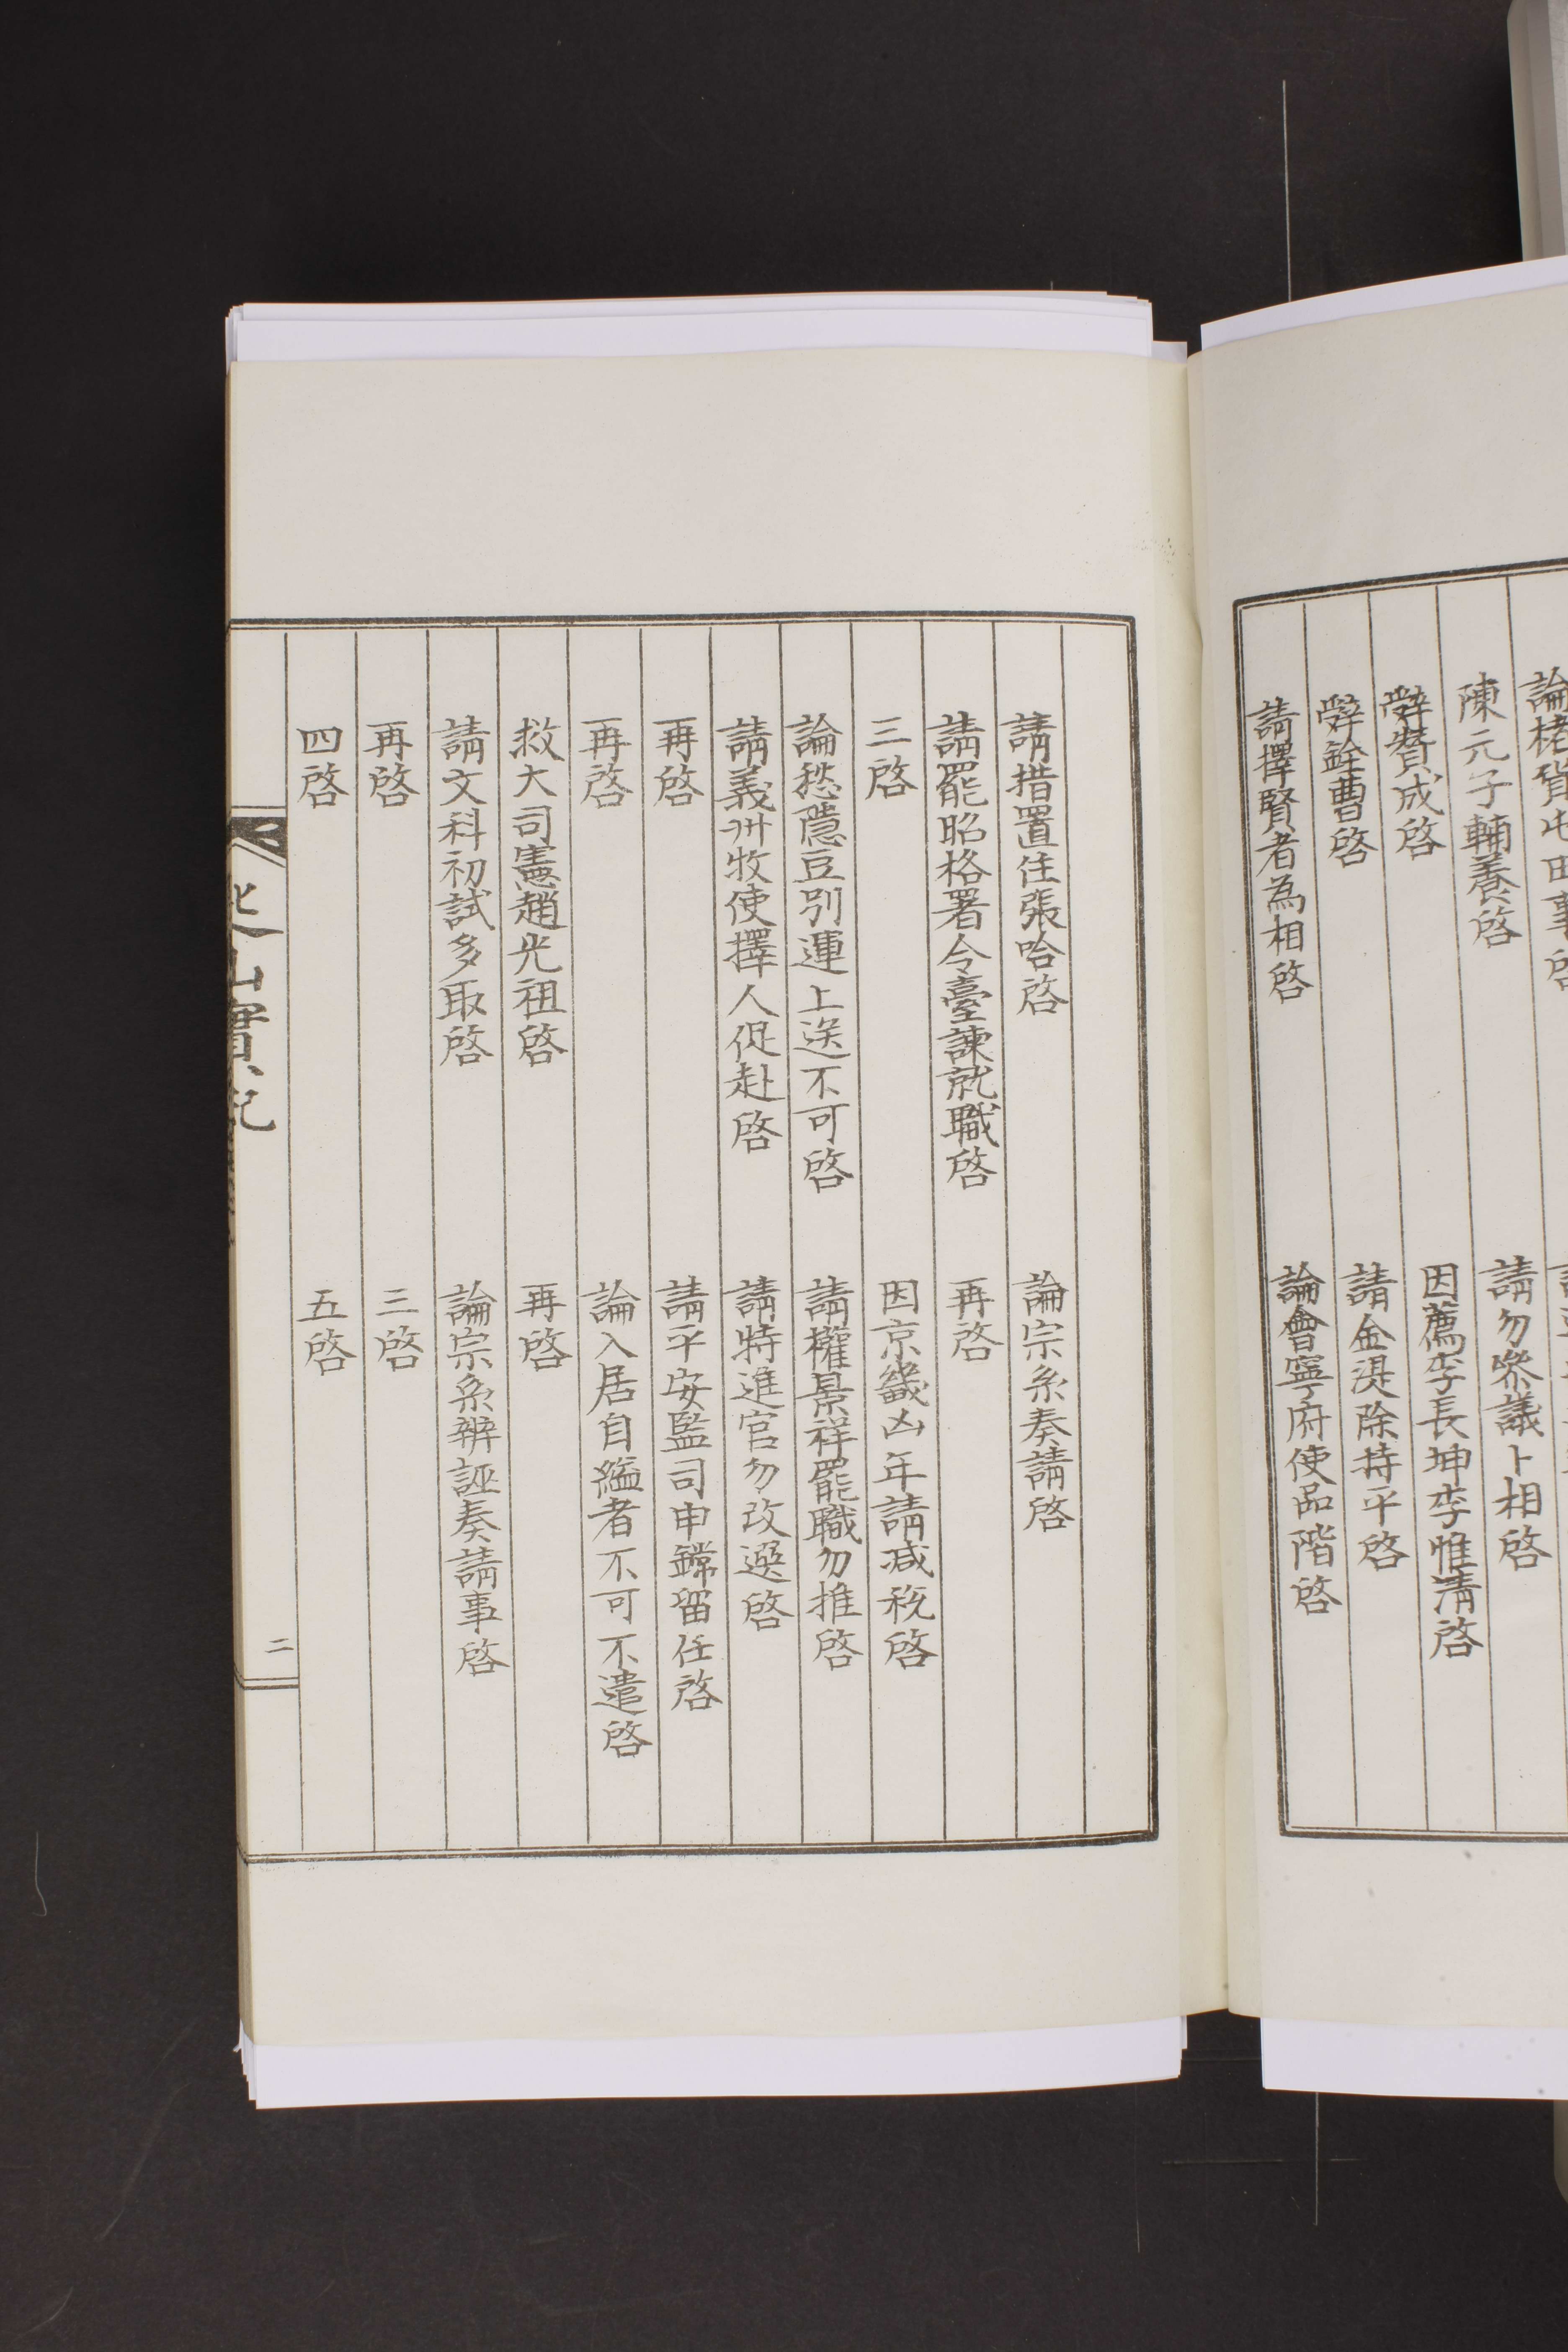 陳元子輔養啓
請勿參議卜相啓
辭贊成啓
因薦李長坤李惟淸啓
辭銓曹啓
請金湜除持平啓
請擇賢者為相啓
論會寧府使品階啓
請措置住張哈啓
論宗系奏請啓
請罷昭格署令臺諫就職啓
再啓
三啓
因京畿凶年請减稅啓
論愁隱豆別運上送不可啓
請權景祥罷職勿推啓
請義州牧使擇人促赴啓
請特進官勿改選啓
再啓
請平安監司申鏛留任啓
再啓
論入居自縊者不可不遣啓
救大司憲趙光祖啓
再啓
請文科初試多取啓
論宗系辨誣奏請事啓
再啓
三啓
四啓
五啓
山實記
二